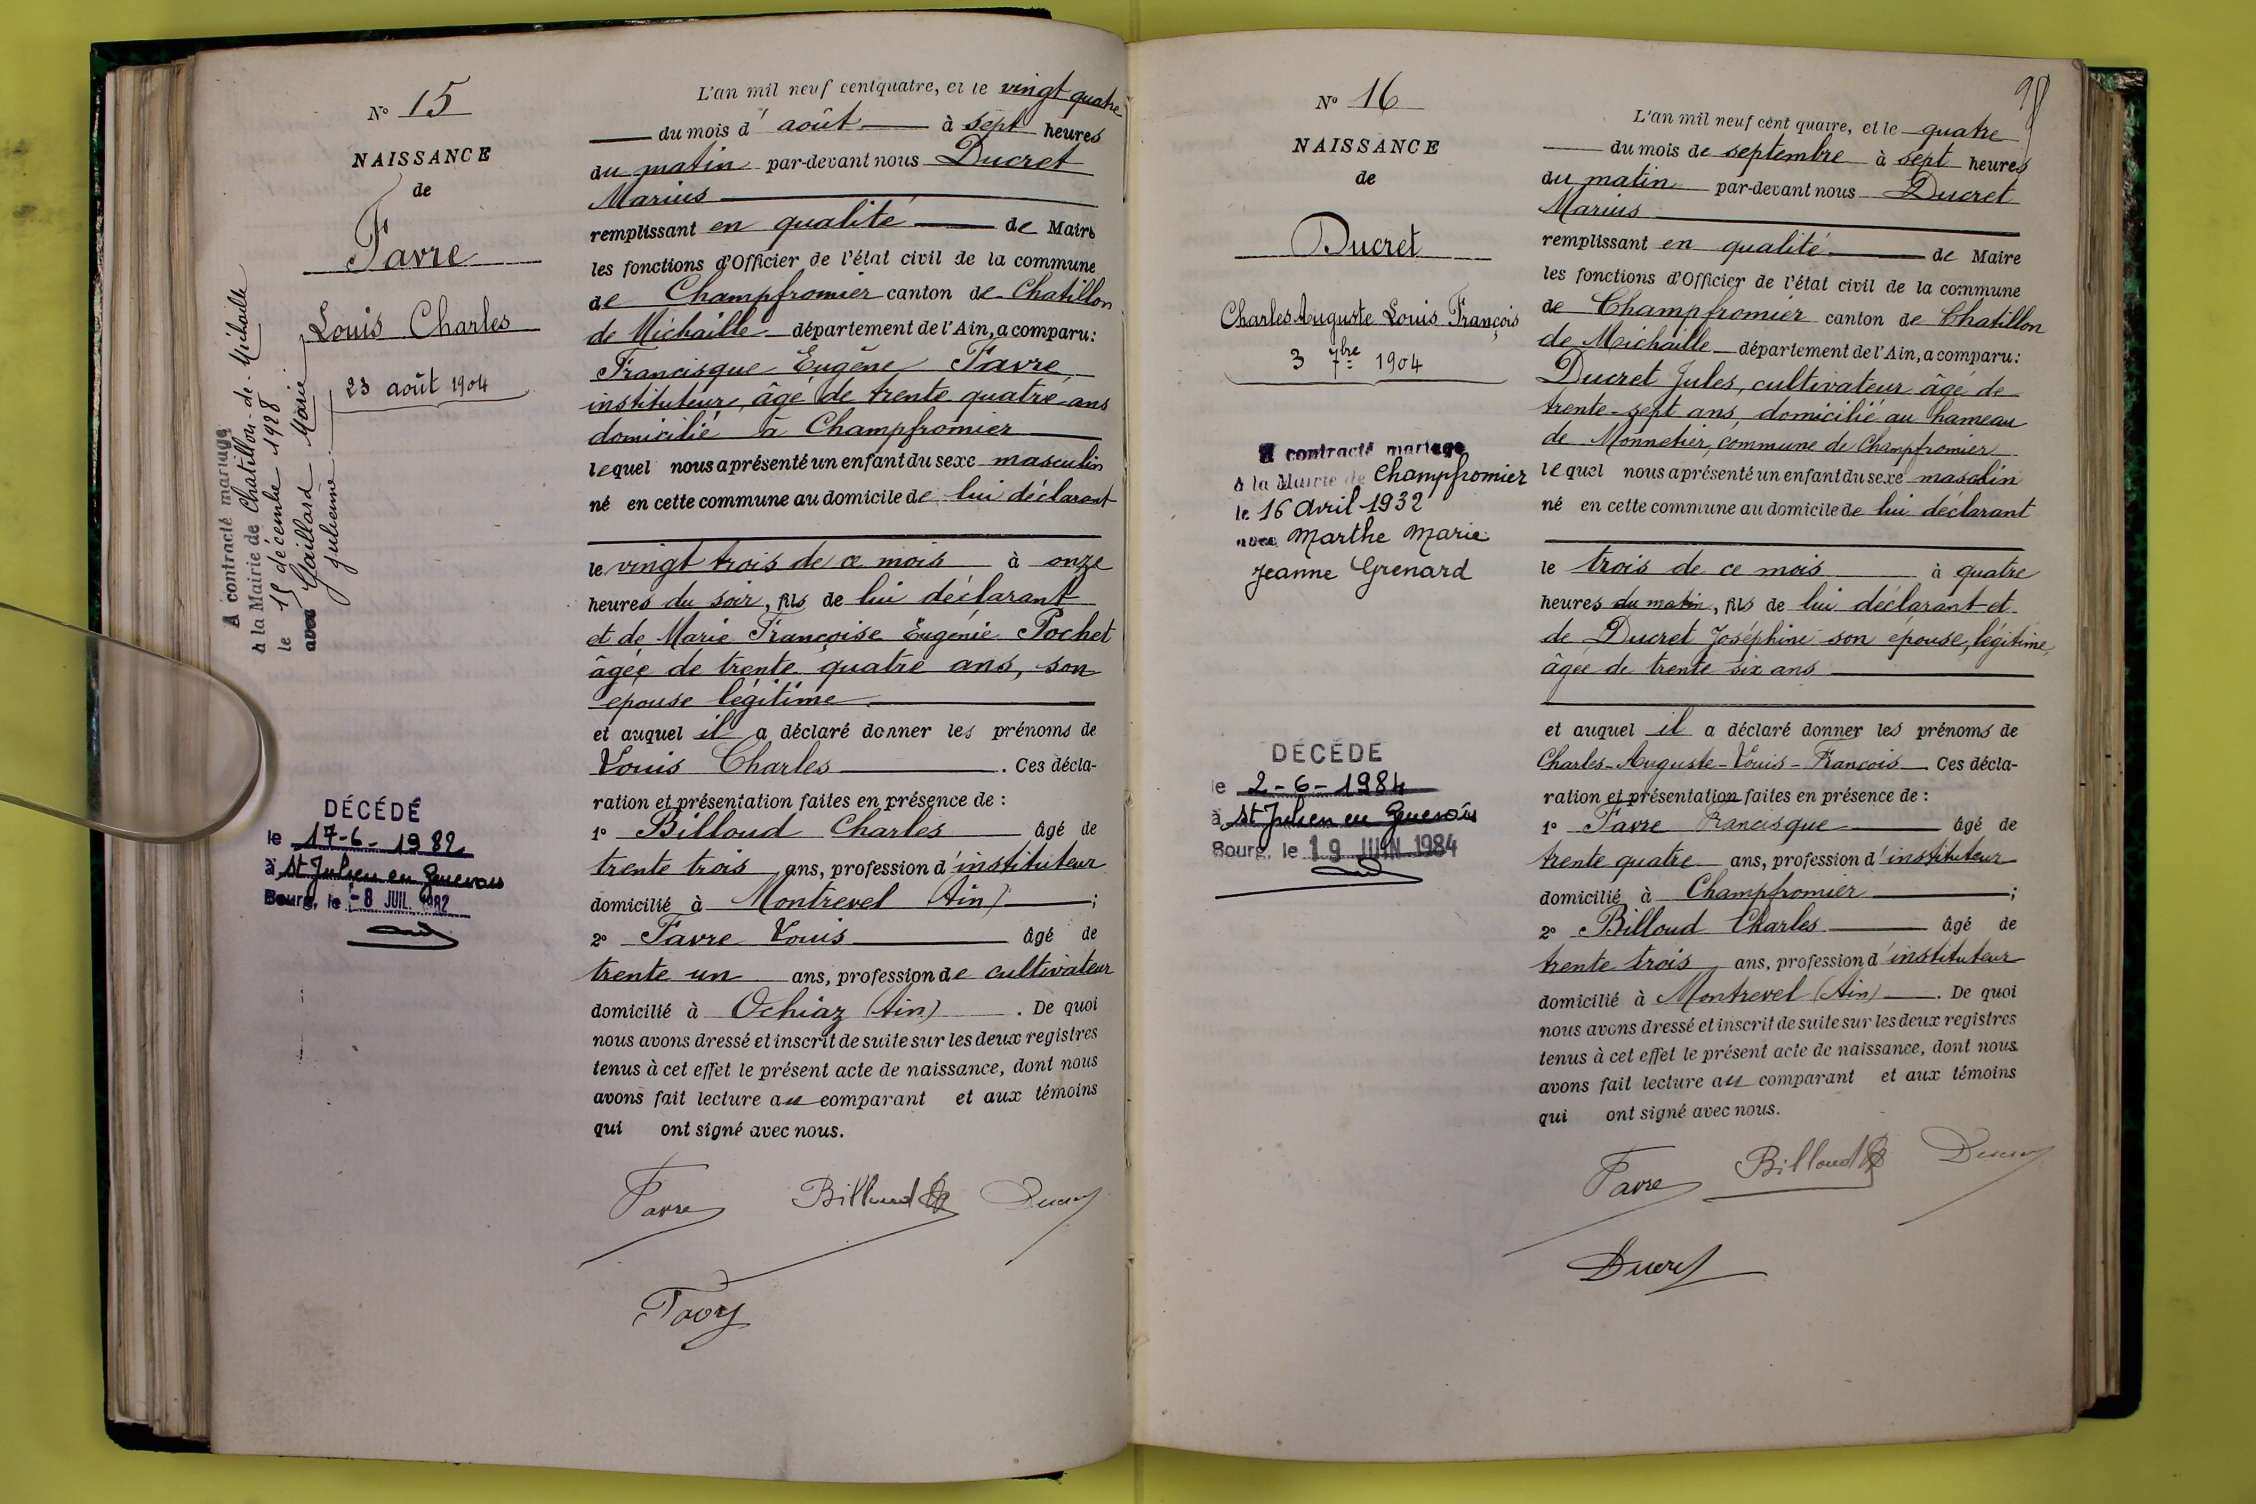 N° 15
NAISSANCE
de
Favre
Louis Charles
23 août 1904
A contracté mariage
à la Mairie de Chatillon-de-Michaille
le 15 décembre 1928
avec Gaillard Marie
Julienne
DÉCÉDÉ
le 17-6-1982
à St Julien en Genevois
Bourg, le -8 JUIL. 1982
L'an mil neuf cent quatre, et le vingt quatre
du mois d'août à sept heures
du matin par-devant nous Ducret
Marius
remplissant en qualité de Maire
les fonctions d'Officier de l'état civil de la commune
de Champfromier canton de Chatillon
de Michaille département de l'Ain, a comparu:
Francisque Eugène Favre
instituteur, âgé de trente quatre ans
domicilié à Champfromier
lequel nous a présenté un enfant du sexe masculin
né en cette commune au domicile de lui déclarant
le vingt trois de ce mois à onze
heures du soir, fils de lui déclarant
et de Marie Françoise Eugénie Pochet
âgée de trente quatre ans, son
épouse légitime
et auquel il a déclaré donner les prénoms de
Louis Charles. Ces décla-
ration et présentation faites en présence de :
1° Billoud Charles âgé de
trente trois ans, profession d'instituteur
domicilié à Montrevel (Ain) ;
2° Favre Louis âgé de
trente un ans, profession de cultivateur
domicilié à Ochiaz (Ain). De quoi
nous avons dressé et inscrit de suite sur les deux registres
tenus à cet effet le présent acte de naissance, dont nous
avons fait lecture au comparant et aux témoins
qui ont signé avec nous.
Favre Billoud Ducret
Favre
98
N° 16
NAISSANCE
de
Ducret
Charles Auguste Louis François
3 7bre 1904
A contracté mariage
à la Mairie de Champfromier
le 16 Avril 1932
avec Marthe Marie
Jeanne Grenard
DÉCÉDÉ
le 2-6-1984
à St Julien en Genevois
Bourg, le 19 JUIN 1984
L'an mil neuf cent quatre, et le quatre
du mois de septembre à sept heures
du matin par-devant nous Ducret
Marius
remplissant en qualité de Maire
les fonctions d'Officier de l'état civil de la commune
de Champfromier canton de Chatillon
de Michaille département de l'Ain, a comparu:
Ducret Jules, cultivateur âgé de
trente-sept ans, domicilié au hameau
de Monnetier, commune de Champfromier
lequel nous a présenté un enfant du sexe masculin
né en cette commune au domicile de lui déclarant
le trois de ce mois à quatre
heures du matin, fils de lui déclarant et
de Ducret Joséphine son épouse, légitime,
âgée de trente six ans
et auquel il a déclaré donner les prénoms de
Charles-Auguste-Louis-François. Ces décla-
ration et présentation faites en présence de :
1° Favre Francisque âgé de
trente quatre ans, profession d'instituteur
domicilié à Champfromier ;
2° Billoud Charles âgé de
trente trois ans, profession d'instituteur
domicilié à Montrevel (Ain). De quoi
nous avons dressé et inscrit de suite sur les deux registres
tenus à cet effet le présent acte de naissance, dont nous
avons fait lecture au comparant et aux témoins
qui ont signé avec nous.
Favre Billoud Ducret
Ducret